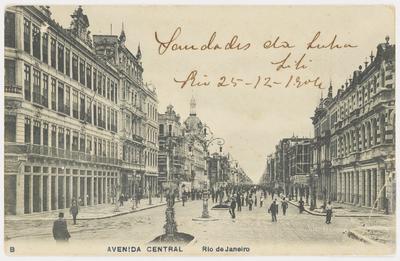 Saudades da Lulna
Lili
Rio 25-12-1906
B AVENIDA CENTRAL Rio de Janeiro